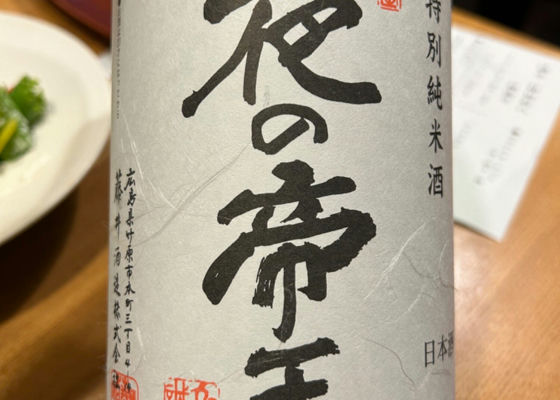 特別純米酒
日本酒
夜の帝王
広島県竹原市本町三丁目4
藤井酒造株式会社